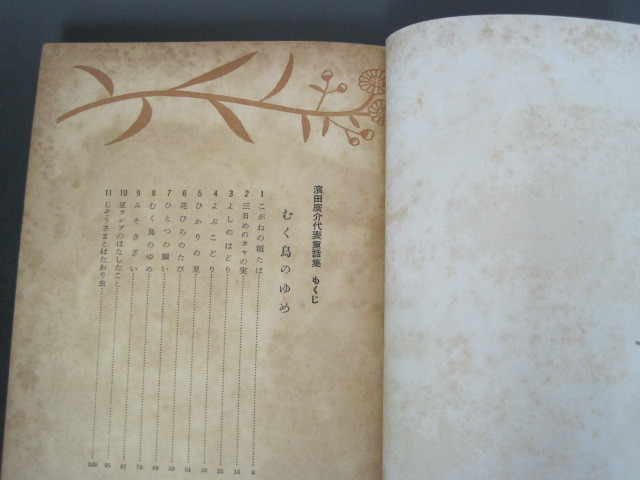 濱田廣介代表童話集 もくじ
むく鳥のゆめ
1 こがねの稲たば 8
2 三日めのカヤの実 13
3 よしのはどり 25
4 よぶこどり
5 ひかりの星
6 花びらのたび 51
7 ひとつの願い
8 むく鳥のゆめ 69
9 みそさざい
10 豆ランプのはなしたこと
11 じぞうさまとはたおり虫 109